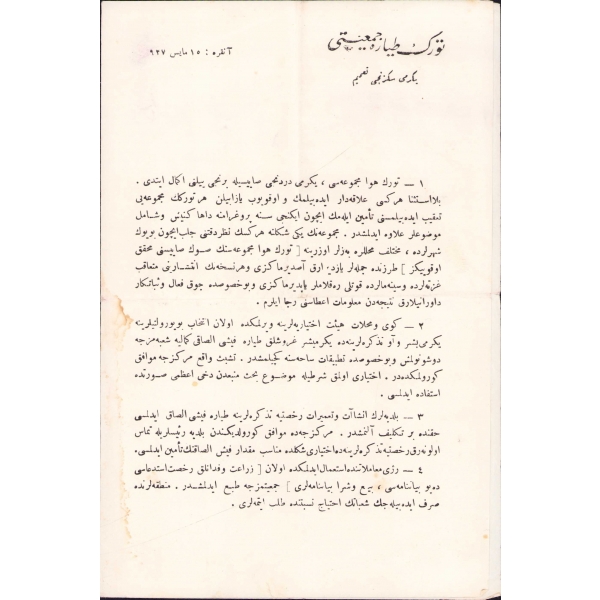 تورك طياره جمعيتى
آنقره : ١٥ مايس ٩٢٧
يگرمى سكزنجى تعميم
١ — تورك هوا مجموعه‌سى ، يكرمى دردنجى صاييسيله برنجى ييلنى اكمال ايتدى .
بلااستثنا هركسى علاقه‌دار ايده‌بيلمك و اوقويوب يازابيلن هر توركك مجموعه‌يى
تعقيب ايده‌بيلمسنى تأمين ايله‌مك ايچون ايكنجى سنه پروغرامنه داها كنيش و شامل
موضوعلر علاوه ايدلمشدر . مجموعه‌نك يكى شكلنه هركسك نظردقتنى جلب ايچون بويوك
شهرلرده ، مختلف محللره بزلر اوزرينه [ تورك هوا مجموعه‌سنك صوك صاييسنى محقق
اوقوييكز ] طرزنده جمله‌لر يازديرارق آصديرماكزى و هر نسخه‌نك انتشارنى متعاقب
غزته‌لرده و سينه‌مالرده قوتلى ره‌قلاملر ياپديرماكزى و بوخصوصده چوق فعال و ثباتكار
داورانيلارق نتيجه‌دن معلومات اعطاسنى رجا ايلرم .
٢ — كوى و محلات هيئت اختياريه‌لرينه ويرلمكده اولان انتخاب بويورولتيلرينه
يكرمى‌بشر و آو تذكره‌لرينه‌ده يكرميشر غروشلق طياره فيشى الصاقى كماليه شعبه‌مزجه
دوشونولمش و بوخصوصده تطبيقات ساحه‌سنه كچيلمشدر . تشبث واقع مركزجه موافق
كورولمكده‌در . اختيارى اولمق شرطيله موضوع بحث منبعدن دخى اعظمى صورتده
استفاده ايدلمسى .
٣ — بلديه‌لرك انشاآت و تعميرات رخصتيه تذكره‌لرينه طياره فيشى الصاق ايدلمسى
حقنده بر تكليف آلنمشدر . مركزجه‌ده موافق كورولديكندن بلديه رئيسلريله تماس
اولونه‌رق رخصتيه تذكره‌لرينه‌ده اختيارى شكلده مناسب مقدار فيش الصاقنك تأمين ايدلمسى .
٤ — رژى معاملاتنده استعمال ايدلمكده اولان [ زراعت و فدانلق رخصت استدعاسى
ده‌پو بياننامه‌سى ، بيع و شرا بياننامه‌لرى ] جمعيتمزجه طبع ايدلمشدر . منطقه‌لرنده
صرف ايده‌بيله‌جك شعباتك احتياج نسبتنده طلب ايتمه‌لرى .